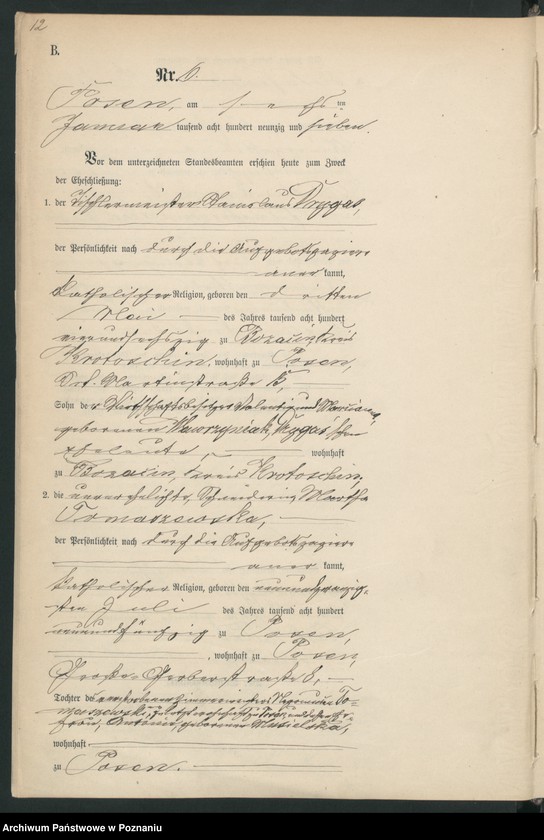 12
B.
Nr. 6.
Posen, am sechsten
Januar tausend acht hundert neunzig und sieben.
Vor dem unterzeichneten Standesbeamten erschien heute zum Zweck
der Eheschließung:
1. der Tischlermeister Stanislaus Drygas,
der Persönlichkeit nach durch die Aufgebotspapiere
anerkannt,
katholischer Religion, geboren den dritten
Mai des Jahres tausend acht hundert
vierundsechszig zu Bozacin, Kreis
Krotoschin, wohnhaft zu Posen,
Skt. Martinstraße
Sohn der Wirthschaftsbesitzer Valentin und Marianna,
geborenen Wawrzyniak, Drygas'schen
Eheleute, wohnhaft
zu Bozacin, Kreis Krotoschin;
2. die unverehelichte, Schneiderin Martha
Tomaszewska,
der Persönlichkeit nach durch die Aufgebotspapiere
anerkannt,
katholischer Religion, geboren den neunundzwanzig-
sten Juli des Jahres tausend acht hundert
neunundfünfzig zu Posen,
, wohnhaft zu Posen,
Große Gerberstraße
Tochter des verstorbenen To-
maszewski, zuletzt wohnhaft zu und dessen Ehe-
frau, Antonie, geborenen Musielska,
wohnhaft
zu Posen.
Archiwum Państwowe w Poznaniu